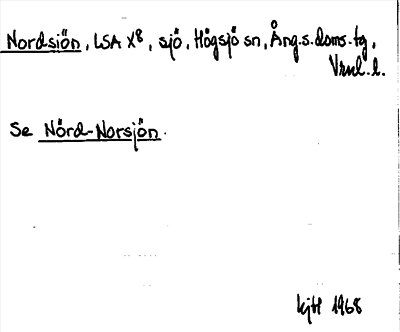 Nordsiön, LSA X8, sjö, Högsjö sn, Ång.s.doms.tg,
Vrnl.l.
Se Nörd-Norsjön.
kjtl 1968